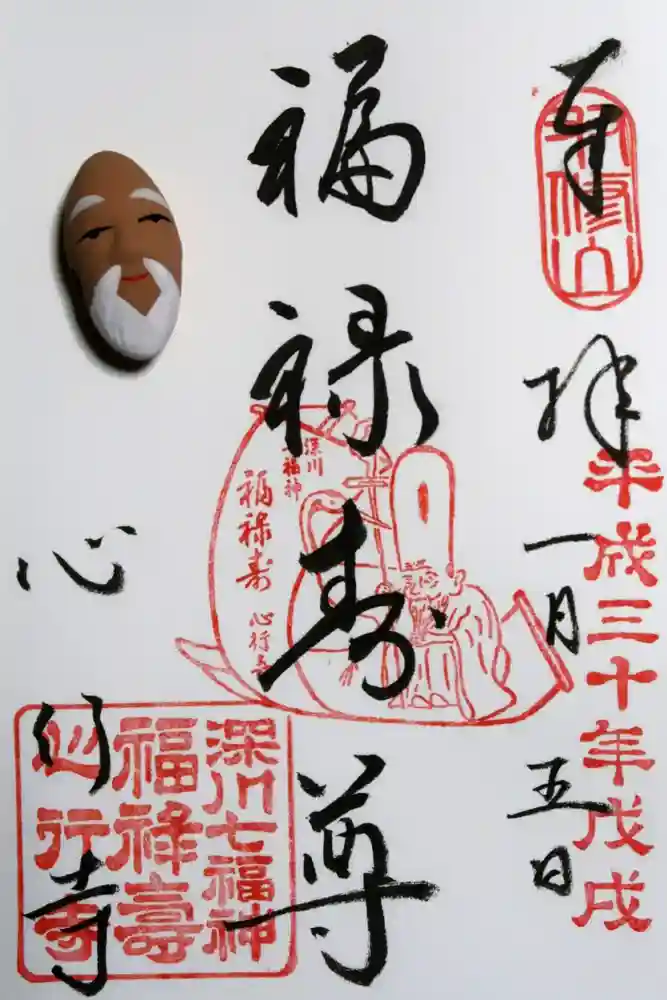 奉拝
双修山
平成三十年戊戌
一月五日
福禄寿尊
深川
七福神
福禄寿
心行寺
心行寺
深川七福神
福禄壽
心行寺